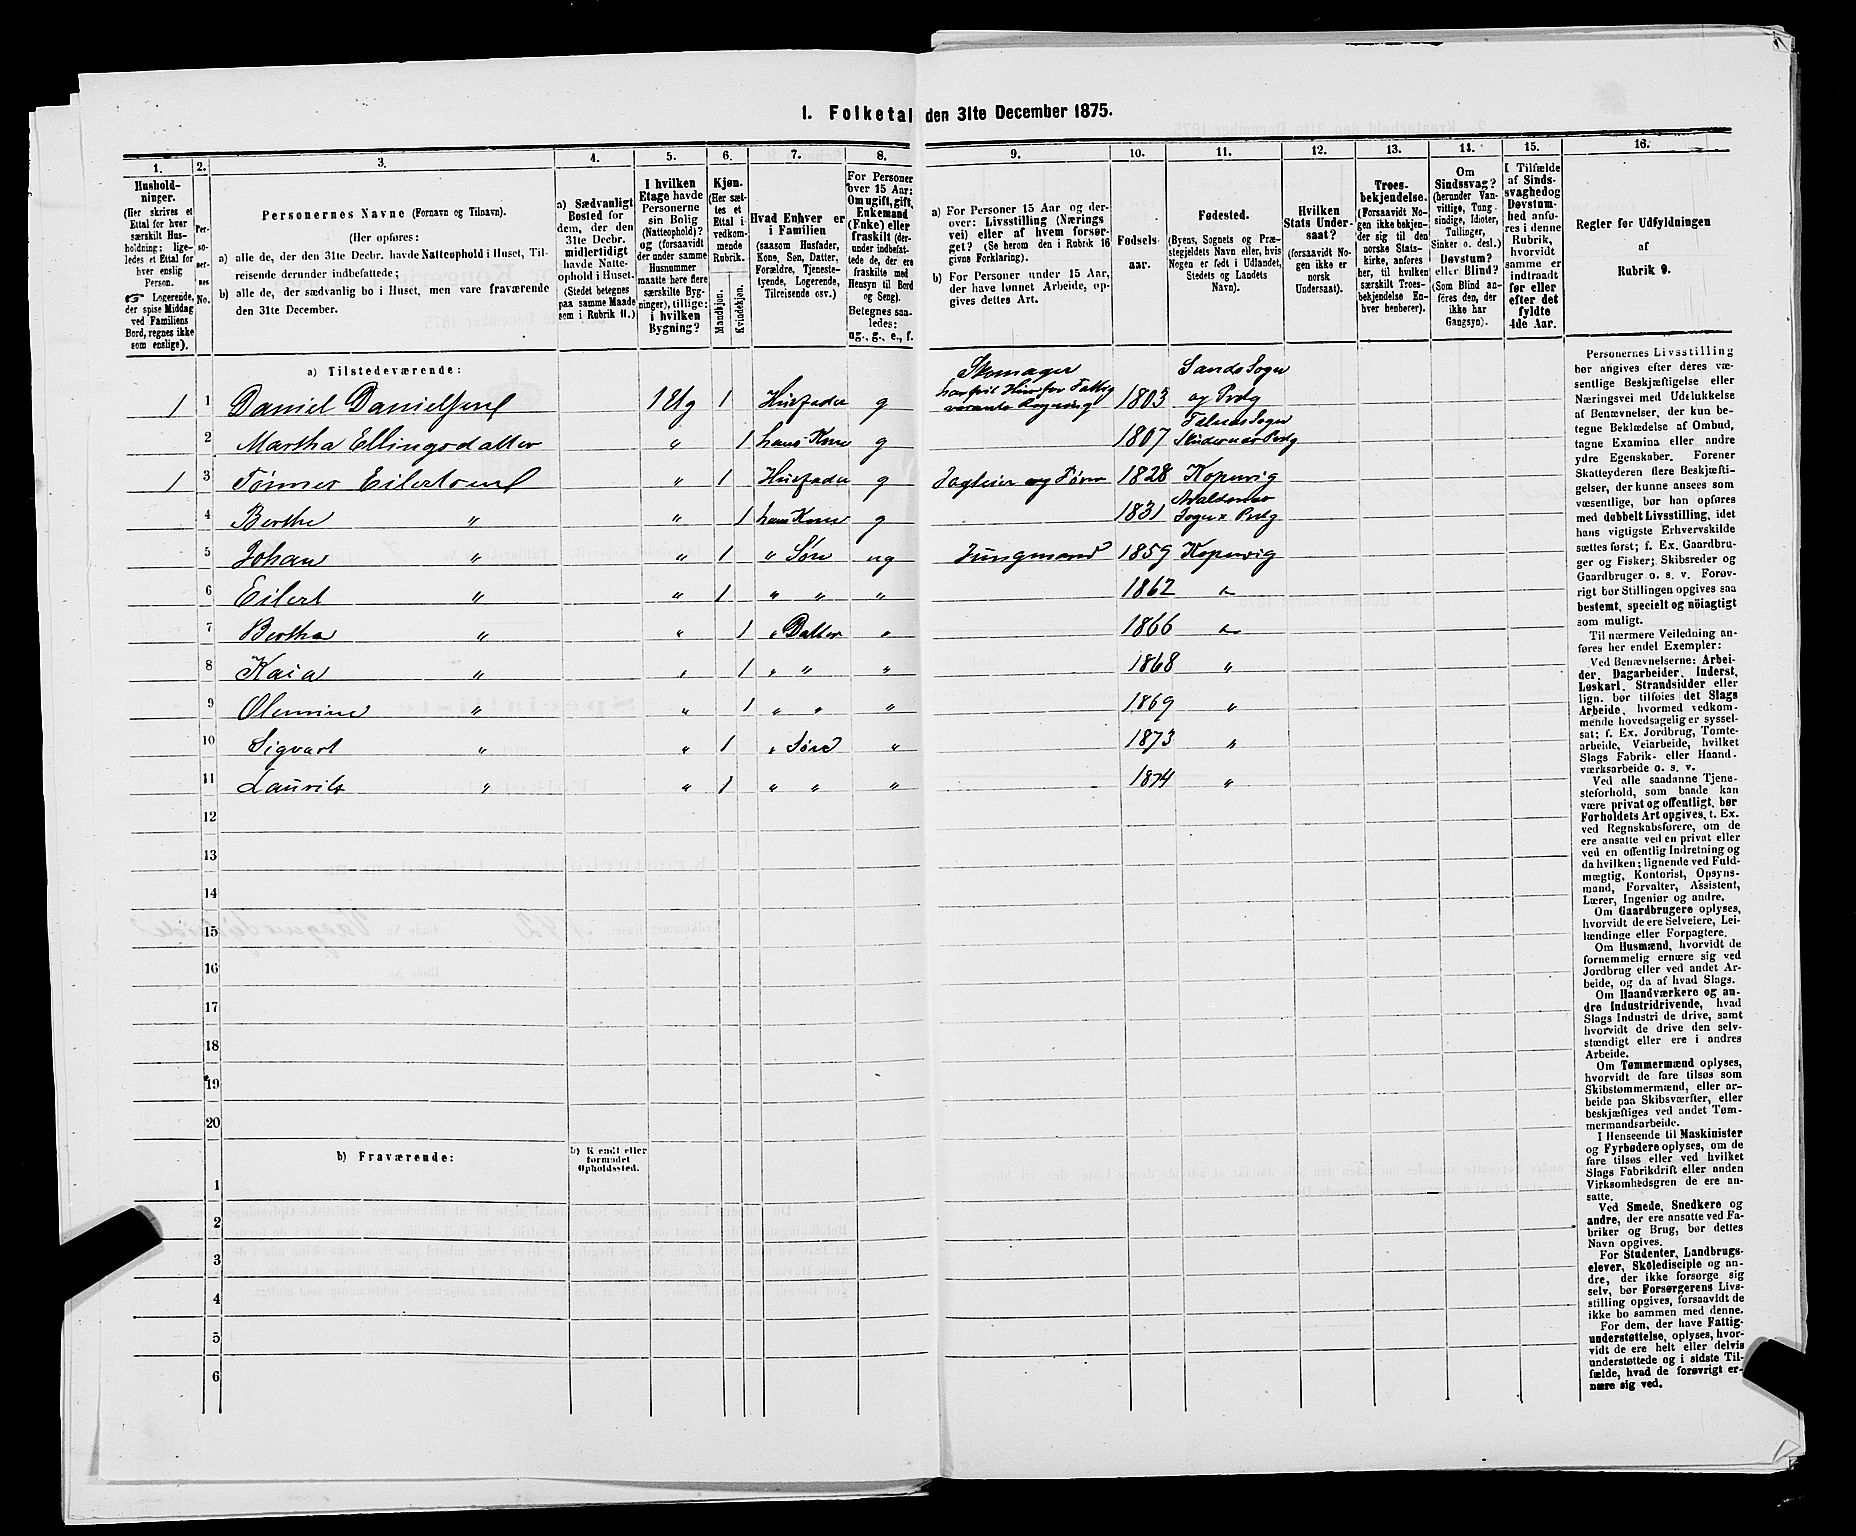 1. Folketal den 31te December 1875.
1.
2.
3.
4.
5.
6.
7.
8.
9.
10.
11.
12.
13.
14.
15.
16.
Hushold-
ninger.
(Her skrives et
Ettal for hver
særskilt Hus-
holdning; lige-
ledes et Ettal for
hver enslig
Person.
☞ Logerende,
der spise Middag
ved Familiens
Bord, regnes ikke
som enslige).
Per-
so-
ner-
nes
No.
Personernes Navne (Fornavn og Tilnavn).
(Her opføres:
a) alle de, der den 31te Decbr. havde Natteophold i Huset, Til-
reisende derunder indbefattede;
b) alle de, der sædvanlig bo i Huset, men vare fraværende
den 31te December.
a) Sædvanligt
Bosted for
dem, der den
31te Decbr.
midlertidigt
havde Natte-
ophold i Huset.
(Stedet betegnes
paa samme Maade
som i Rubrik 11.)
I hvilken
Etage havde
Personerne
sin Bolig
(Natteophold)?
og (forsaavidt
der under samme
Husnummer
maatte høre flere
særskilte Byg-
ninger), tillige:
i hvilken
Bygning?
Kjøn.
(Her sæt-
tes et
Ettal i
vedkom-
mende
Rubrik.
Mandkjøn.
Kvindekjøn.
Hvad Enhver er
i Familien
(saasom Husfader,
Kone, Søn, Datter,
Forældre, Tjeneste-
tyende, Logerende,
Tilreisende osv.)
For Personer
over 15 Aar:
Om ugift, gift,
Enkemand
(Enke) eller
fraskilt (der-
under indbefat-
tede de, der ere
fraskilte med
Hensyn til Bord
og Seng).
Betegnes saa-
ledes:
ug., g., e., f.
a) For Personer 15 Aar og der-
over: Livsstilling (Nærings
vei) eller af hvem forsør-
get? (Se herom den i Rubrik 16
givne Forklaring).
b) For Personer under 15 Aar,
der have lønnet Arbeide, op-
gives dettes Art.
Fødsels-
aar.
Fødested.
(Byens, Sognets og Præ-
stegjeldets Navn eller, hvis
Nogen er født i Udlandet,
Stedets og Landets
Navn).
Hvilken
Stats Under-
saat?
(forsaavidt No-
gen ikke er
norsk
Undersaat).
Troes-
bekjendelse.
(Forsaavidt No-
gen ikke bekjen-
der sig til den
norske Stats-
kirke, anføres
her, til hvilken
særskilt Troes-
bekjendelse En-
hver henhører).
Om
Sindssvag?
(herunder Van-
vittige, Tung-
sindige, Idioter,
Tullinger,
Sinker o. desl.)
Døvstum?
eller Blind?
(Som Blind an-
føres den, der
ikke har
Gangsyn).
I Tilfælde
af Sinds-
svaghed og
Døvstum-
hed anfø-
res i denne
Rubrik,
hvorvidt
samme er
indtraadt
før eller
efter det
fyldte
4de Aar.
Regler for Udfyldningen
af
Rubrik 9.
a) Tilstedeværende:
1 1 Daniel Danielsen 1 Etg 1 Husfader g Skomager 1803 Sands Sogn og Pręg
2 Martha Ellingsdatter " 1 hans Kone g 1807
1 3 Tønnes Eilertsen " 1 Husfader g 1828 Kopervig
4 Berthe " " 1 hans Kone g 1831
5 Johan " " 1 " Søn ug Jungmand 1859 Kopervig
6 Eilert " " 1 " " " 1862 "
7 Bertha " " 1 " Datter " 1866 "
8 Kaia " " 1 " " " 1868 "
9 Olemine " " 1 " " " 1869 "
10 Sigvart " " 1 " Søn " 1873 "
11 Laurits " " 1 " " " 1874 "
12
13
14
15
16
17
18
19
20
b) Fraværende:
b) Kjendt eller
formodet
Opholdssted.
1
2
3
4
5
6
Personernes Livsstilling
bør angives efter deres væ-
sentlige Beskjæftigelse eller
Næringsvei med Udelukkelse
af Benævnelser, der kun be-
tegne Beklædelse af Ombud,
tagne Examina eller andre
ydre Egenskaber. Forener
Skatteyderen flere Beskjæfti-
gelser, der kunne ansees som
væsentlige, bør han opføres
med dobbelt Livsstilling, idet
hans vigtigste Erhvervskilde
sættes først; f. Ex. Gaardbru-
ger og Fisker; Skibsreder og
Gaardbruger o. s. v. Forøv-
rigt bør Stillingen opgives saa
bestemt, specielt og nöiagtigt
som muligt.
Til nærmere Veiledning an-
føres her endel Exempler:
Ved Benævnelserne: Arbei-
der, Dagarbeider, Inderst,
Løskarl, Strandsidder eller
lign. bør tilføies det Slags
Arbeide, hvormed vedkom-
mende hovedsagelig er syssel-
sat; f. Ex. Jordbrug, Tomte-
arbeide, Veiarbeide, hvilket
Slags Fabrik- eller Haand-
værksarbeide o. s. v.
Ved alle saadanne Tjene-
steforhold, som baade kan
være privat og offentligt, bør
Forholdets Art opgives, t. Ex.
ved Regnskabsførere, om de
ere ansatte ved en privat eller
ved en offentlig Indretning og
da hvilken; lignende ved Fuld-
mægtig, Kontorist, Opsyns-
mand, Forvalter, Assistent,
Lærer, Ingeniør og andre.
Om Gaardbrugere oplyses,
hvorvidt de ere Selveiere, Lei-
lændinge eller Forpagtere.
Om Husmænd, hvorvidt de
fornemmelig ernære sig ved
Jordbrug eller ved andet Ar-
beide, og da af hvad Slags.
Om Haandværkere og an-
dre Industridrivende, hvad
Slags Industri de drive, samt
hvorvidt de drive den selv-
stændigt eller ere i andres
Arbeide.
Om Tømmermænd oplyses,
hvorvidt de fare tilsøs som
Skibstømmermænd, eller ar-
beide paa Skibsværfter, eller
beskjæftiges ved andet Tøm-
mermandsarbeide.
I Henseende til Maskinister
og Fyrbødere oplyses, om de
fare tilsøs eller ved hvilket
Slags Fabrikdrift eller anden
Virksomhedsgren de ere an-
satte.
Ved Smede, Snedkere og
andre, der ere ansatte ved Fa-
briker og Brug, bør dettes
Navn opgives.
For Studenter, Landbrugs-
elever, Skoledisciple og an-
dre, der ikke forsørge sig
selv, bør Forsørgerens Livs-
stilling opgives, forsaavidt de
ikke bo sammen med denne.
For dem, der have Fattig-
understøttelse, oplyses, hvor-
vidt de ere helt eller delvis
understøttede og i sidste Til-
fælde, hvad de forøvrigt er-
nære sig ved.